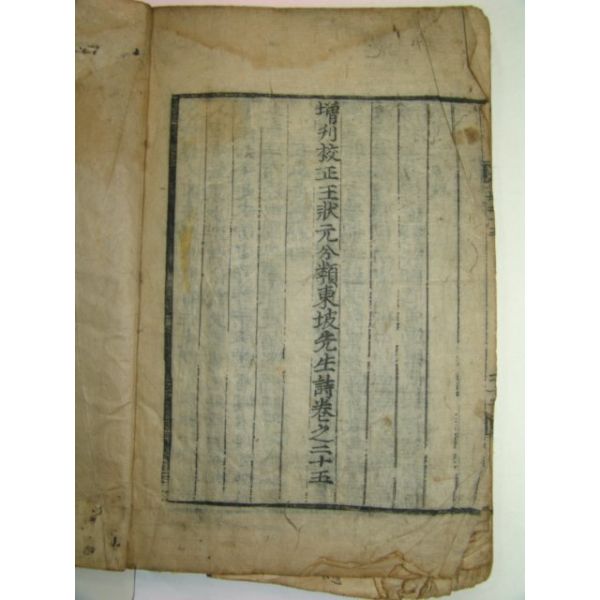 增刊校正王狀元分類東坡先生詩卷之二十五